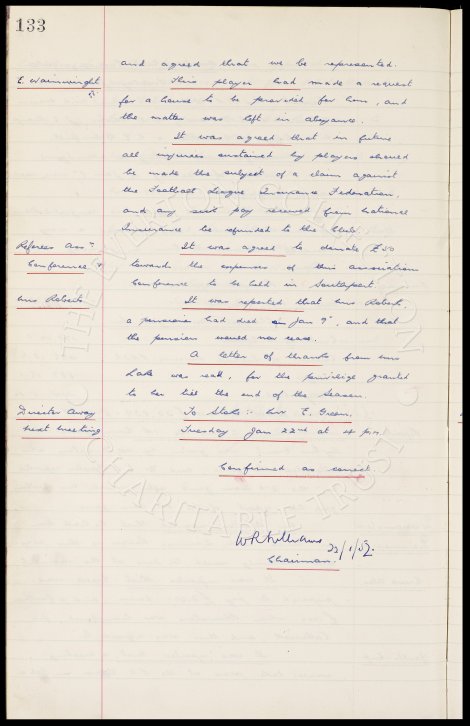 133
and agreed that we be represented.
E. Wainwright
This player had made a request
for a house to be provided for him, and
the matter was left in abeyance.
It was agreed that in future
all injuries sustained by players should
be made the subject of a claim against
the Football League Insurance Federation,
and any sick pay received from National
Insurance be refunded to the Club.
Referees Assn
Conference
It was agreed to donate £50
towards the expenses of this association
Conference to be held in Southport.
Mrs Roberts
It was reported that Mrs Roberts
a pensioner had died on Jan 9th, and that
the pension would now cease.
A letter of thanks from Mrs
Lake was read, for the privilege granted
to her till the end of the season.
Director Away
next meeting
To Stoke :- Mr E. Green.
Tuesday Jan 22nd at 4 p.m.
Confirmed as correct
W R Williams
Chairman.
THE EVERTON COLLECTION
CHARITABLE TRUST